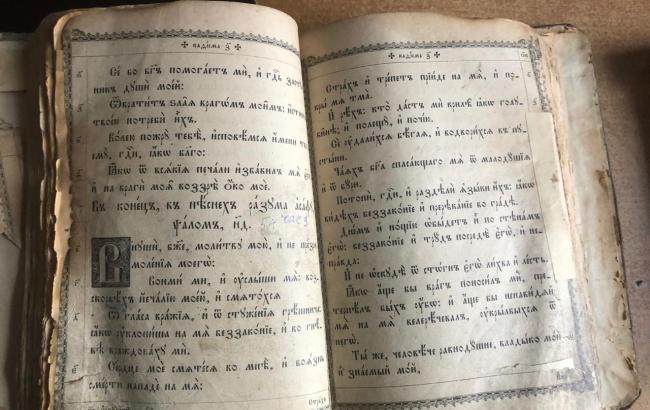 каѳісма з҃
Се́ бо бг҃ъ помога́етъ мѝ, и҆ гдⷭ҇ь засту́п-
никъ дꙋшѝ мое́й:
Ѿврати́тъ ѕла̑ѧ врагѡ́мъ мои̑мъ: и҆́стиною
твое́ю потребѝ и҆̀хъ.
Во́лею пожрꙋ̀ тебѣ̀, и҆сповѣ́мсѧ и҆́мени твое-
мꙋ̀, гдⷭ҇и, ꙗ҆́кѡ бл҃го:
Ꙗ҆́кѡ ѿ всѧ́кїѧ печа́ли и҆зба́вилъ мѧ̀ є҆сѝ,
и҆ на врагѝ моѧ̑ воззрѣ̀ ѻ҆́ко моѐ.
Въ коне́цъ, въ пѣ́снехъ ра́зꙋма а҆са́фꙋ
ѱало́мъ, н҃д.
Внꙋшѝ, бж҃е, моли́твꙋ мою̀, и҆ не пре́зри
моле́нїѧ моегѡ̀:
Вонмѝ мѝ, и҆ ᲂу҆слы́ши мѧ̀: воз-
скорбѣ́хъ печа́лїю мое́ю, и҆ смѧто́хсѧ
Ѿ гла́са вра́жїѧ, и҆ ѿ стꙋже́нїѧ грѣ́шнича:
ꙗ҆́кѡ ᲂу҆клони́ша на мѧ̀ беззако́нїе, и҆ во гнѣ́-
вѣ враждова́хꙋ мѝ.
Се́рдце моѐ смѧте́сѧ во мнѣ̀, и҆ боѧ́знь
сме́рти нападѐ на мѧ̀:
Стра́хъ
каѳісма з҃
Стра́хъ и҆ тре́петъ прїи́де на мѧ̀, и҆ по-
кры́ мѧ тма̀.
И҆ рѣ́хъ: кто̀ да́стъ мѝ крилѣ̀ ꙗ҆́кѡ голꙋ-
бинѣ̀; и҆ полещꙋ̀, и҆ почі́ю.
Сѐ ᲂу҆дали́хсѧ бѣ́гаѧ, и҆ водвори́хсѧ въ пꙋ-
сты́ни.
Ча́ѧхъ бг҃а спаса́ющаго мѧ̀ ѿ малодꙋ́шїѧ
и҆ ѿ бꙋ́ри.
Потопѝ, гдⷭ҇и, и҆ раздѣлѝ ꙗ҆зы́ки и҆́хъ: ꙗ҆́кѡ
ви́дѣхъ беззако́нїе и҆ прерѣка́нїе во гра́дѣ.
Дне́мъ и҆ но́щїю ѡ҆бы́детъ и҆̀ по стѣна́мъ
є҆гѡ̀: беззако́нїе и҆ трꙋ́дъ посредѣ̀ є҆гѡ̀, и҆ не-
пра́вда:
И҆ не ѡ҆скꙋдѣ̀ ѿ сто́гнъ є҆гѡ̀ ли́хва и҆ ле́сть:
Ꙗ҆́кѡ а҆́ще бы вра́гъ поноси́лъ мѝ, пре-
терпѣ́лъ бы́хъ ᲂу҆́бѡ: и҆ а҆́ще бы ненави́дѧй
мѧ̀ на мѧ̀ велерѣ́чевалъ, ᲂу҆кры́лбыхсѧ ѿ
негѡ̀.
Ты́ же, человѣ́че равнодꙋ́шне, влады́ко мо́й
и҆ зна́емый мо́й,